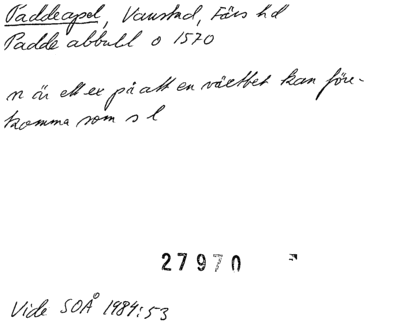 Paddeapel, Vanstad, Färs hd
Padde abbull o 1570
n är ett ex på att en växtbet kan före-
komma som s l
27970
Vide SOÅ 1984:53